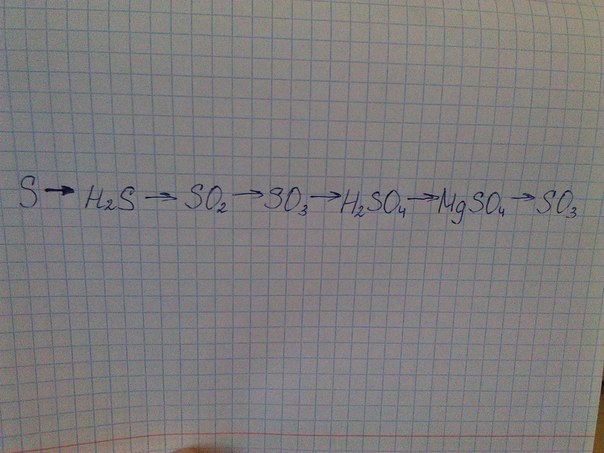 S → H₂S → SO₂ → SO₃ → H₂SO₄ → MgSO₄ → SO₃